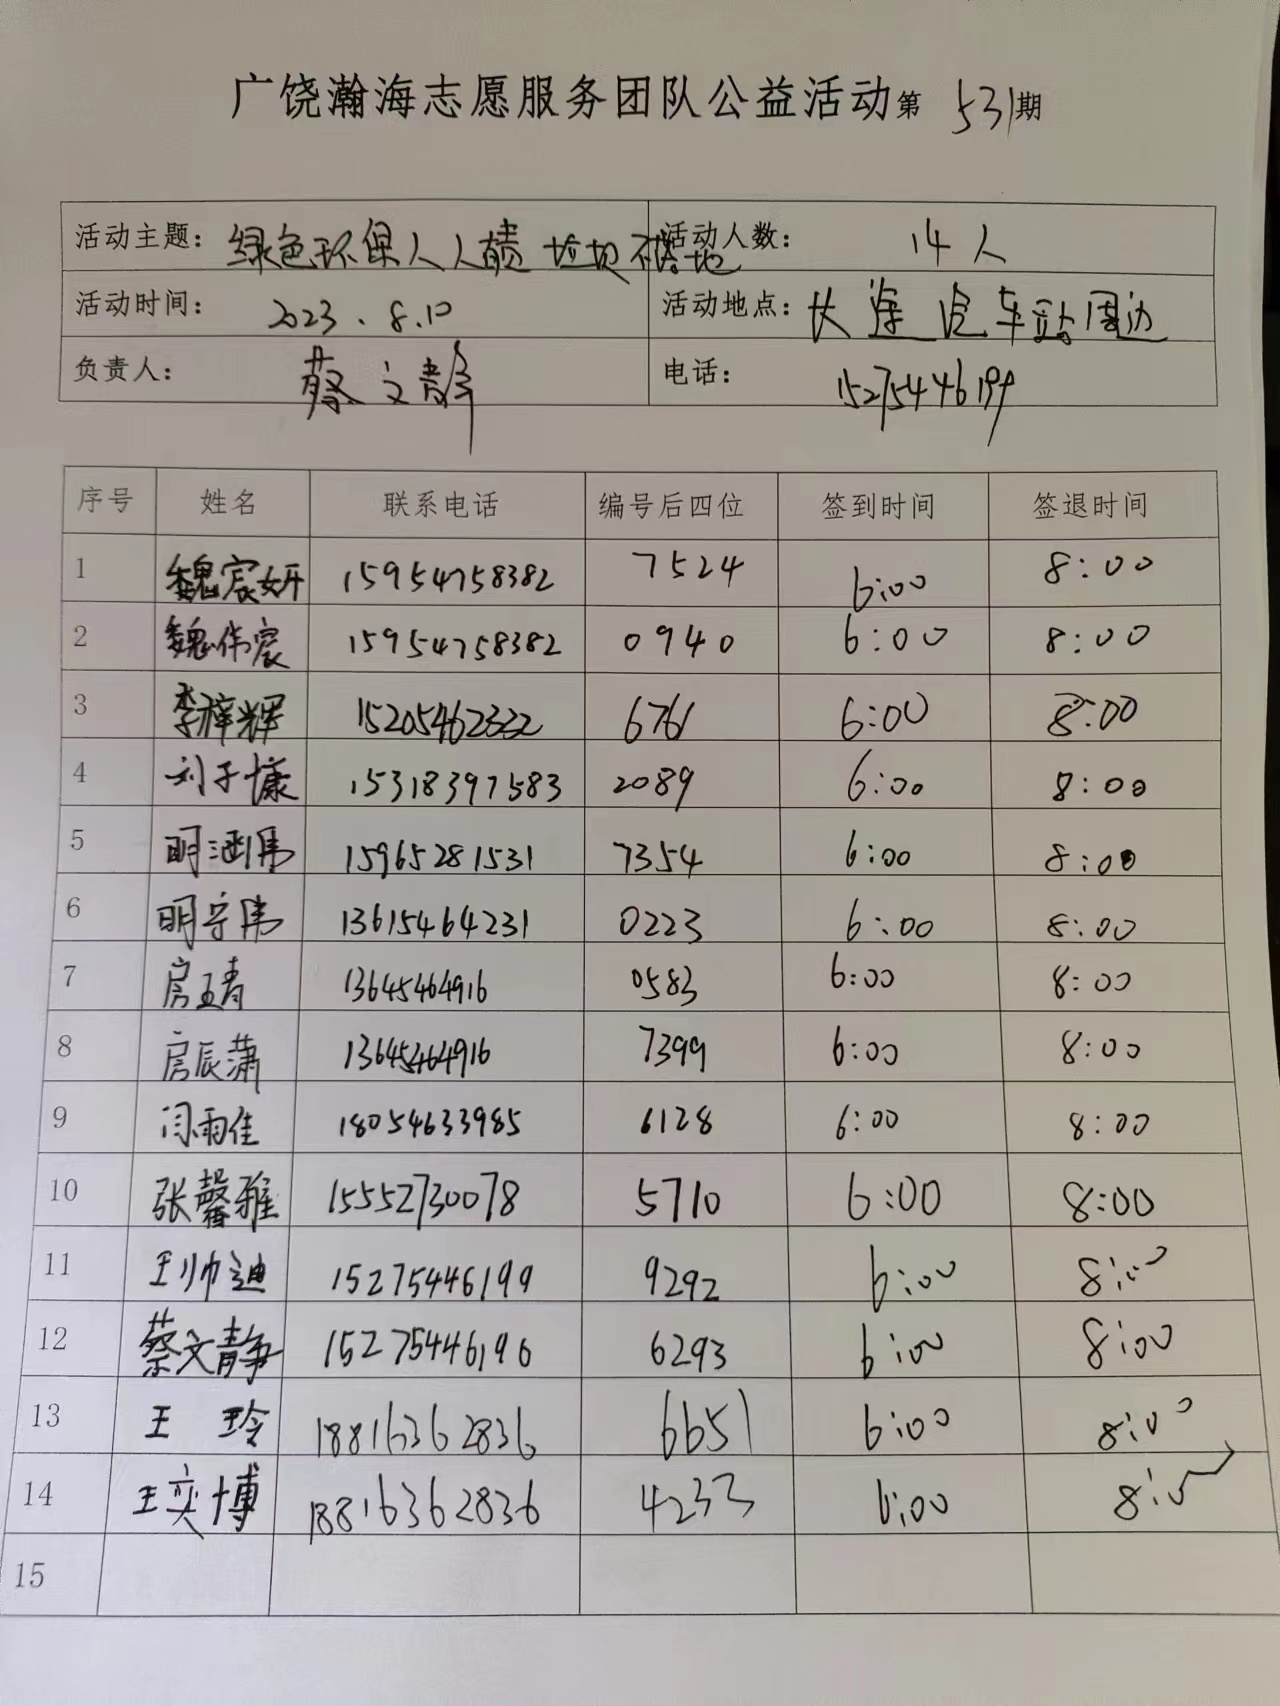 广饶瀚海志愿服务团队公益活动第 531期
活动主题：绿色环保人人有责 垃圾不落地 活动人数： 14人
活动时间： 2023.8.10 活动地点：长途汽车站周边
负责人： 蔡文静 电话： 15275446199
序号 姓名 联系电话 编号后四位 签到时间 签退时间
1 魏宸妍 15954758382 7524 6:00 8:00
2 魏伟宸 15954758382 0940 6:00 8:00
3 李梓辉 15205462332 6761 6:00 8:00
4 刘子慷 15318397583 2089 6:00 8:00
5 明涵伟 15965281531 7354 6:00 8:00
6 明守伟 13615464231 0223 6:00 8:00
7 房玉青 13645464916 0583 6:00 8:00
8 房辰潇 13645464916 7399 6:00 8:00
9 闫雨佳 18054633985 6128 6:00 8:00
10 张馨雅 15552730078 5710 6:00 8:00
11 王帅迪 15275446199 9292 6:00 8:00
12 蔡文静 15275446196 6293 6:00 8:00
13 王玲 18816362836 6651 6:00 8:00
14 王奕博 18816362836 4233 6:00 8:00
15